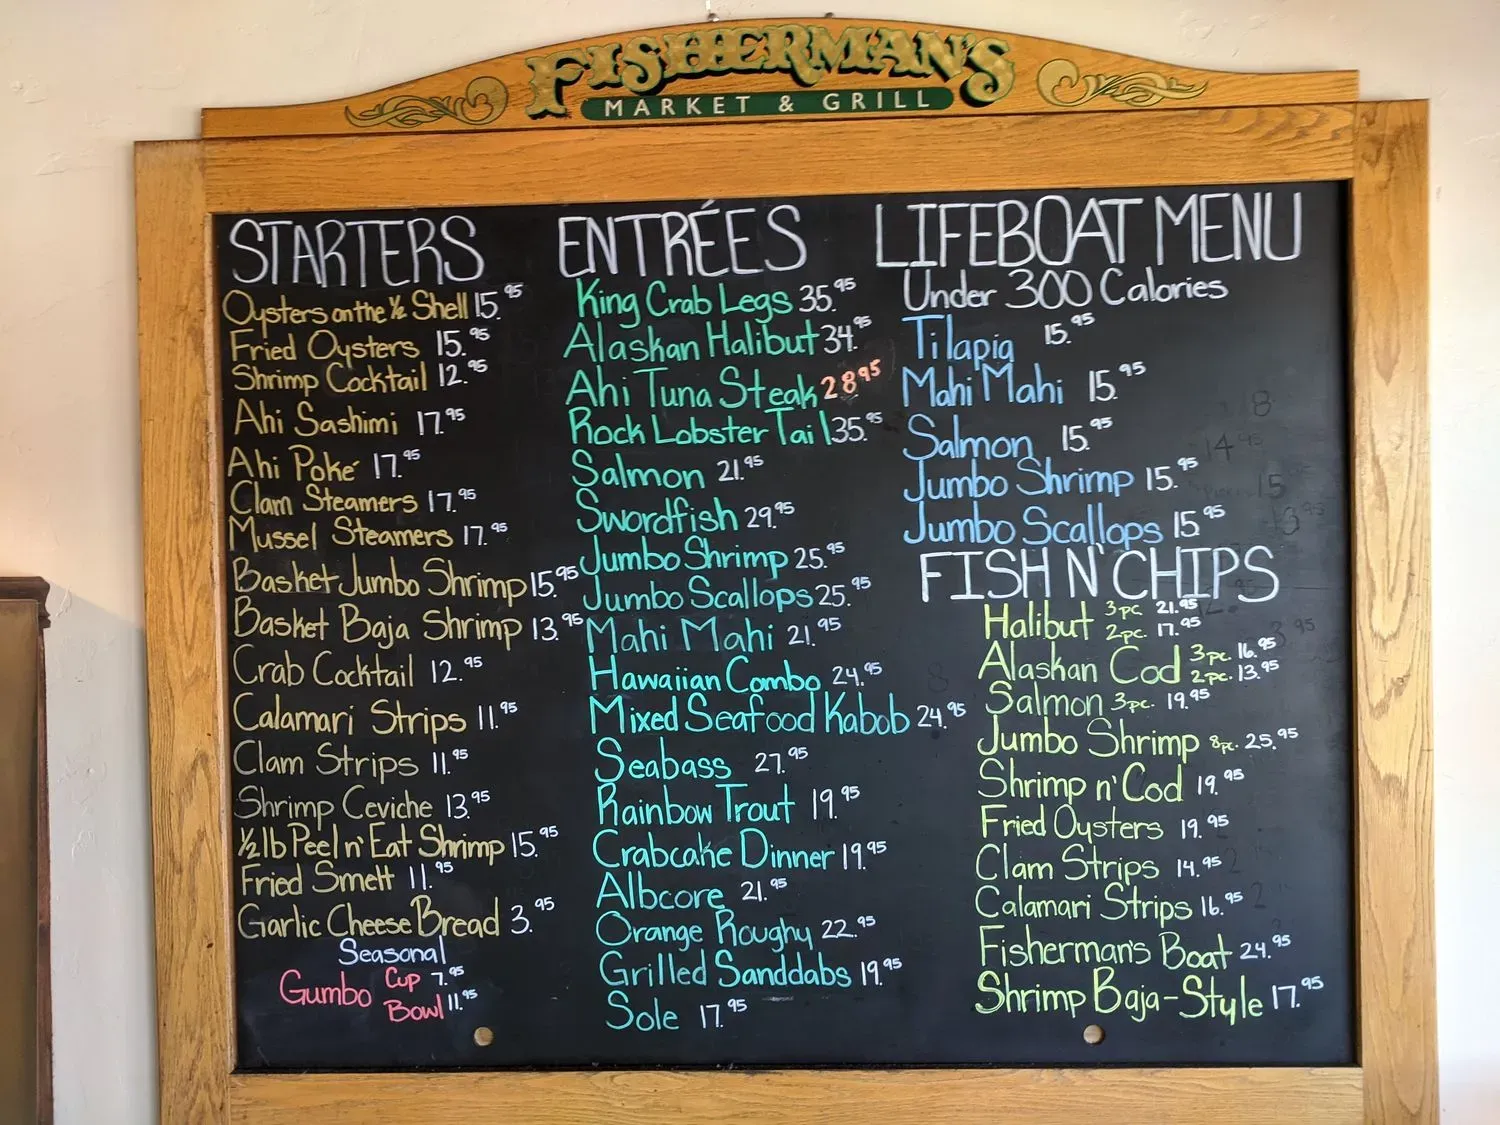 FISHERMAN'S
MARKET & GRILL
STARTERS
Oysters on the ½ Shell 15.95
Fried Oysters 15.95
Shrimp Cocktail 12.95
Ahi Sashimi 17.95
Ahi Poké 17.95
Clam Steamers 17.95
Mussel Steamers 17.95
Basket Jumbo Shrimp 15.95
Basket Baja Shrimp 13.95
Crab Cocktail 12.95
Calamari Strips 11.95
Clam Strips 11.95
Shrimp Ceviche 13.95
½ lb Peel n' Eat Shrimp 15.95
Fried Smelt 11.95
Garlic Cheese Bread 3.95
Seasonal
Gumbo Cup 7.95
Bowl 11.95
ENTRÉES
King Crab Legs 35.95
Alaskan Halibut 34.95
Ahi Tuna Steak 28.95
Rock Lobster Tail 35.95
Salmon 21.95
Swordfish 29.95
Jumbo Shrimp 25.95
Jumbo Scallops 25.95
Mahi Mahi 21.95
Hawaiian Combo 24.95
Mixed Seafood Kabob 24.95
Seabass 27.95
Rainbow Trout 19.95
Crabcake Dinner 19.95
Albcore 21.95
Orange Roughy 22.95
Grilled Sanddabs 19.95
Sole 17.95
LIFEBOAT MENU
Under 300 Calories
Tilapia 15.95
Mahi Mahi 15.95
Salmon 15.95
Jumbo Shrimp 15.95
Jumbo Scallops 15.95
FISH N' CHIPS
Halibut 3pc. 21.95
2pc. 17.95
Alaskan Cod 3pc. 16.95
2pc. 13.95
Salmon 3pc. 19.95
Jumbo Shrimp 8pc. 25.95
Shrimp n' Cod 19.95
Fried Oysters 19.95
Clam Strips 14.95
Calamari Strips 16.95
Fisherman's Boat 24.95
Shrimp Baja-Style 17.95